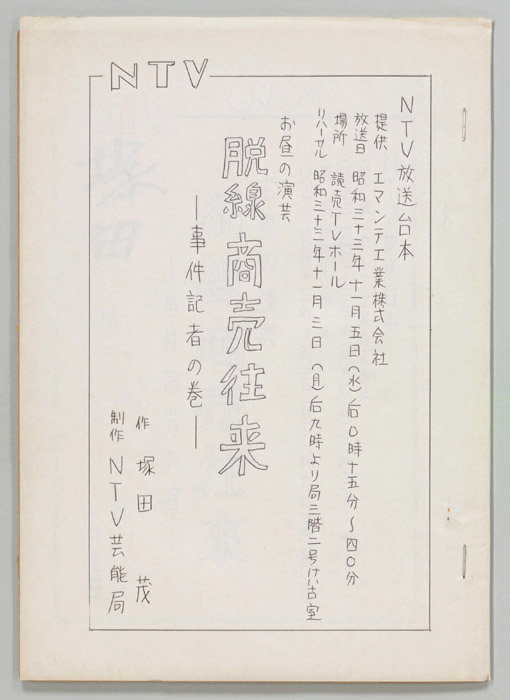 NTV
NTV放送台本
提供 エマンテ工業株式会社
放送日 昭和三十三年十一月五日(水)后0時十五分〜四0分
場所 読売TVホール
リハーサル 昭和三十三年十一月三日(月)后九時より局三階二号けい古室
お昼の演芸
脱線商売往来
―事件記者の巻―
作 塚田 茂
制作 NTV芸能局